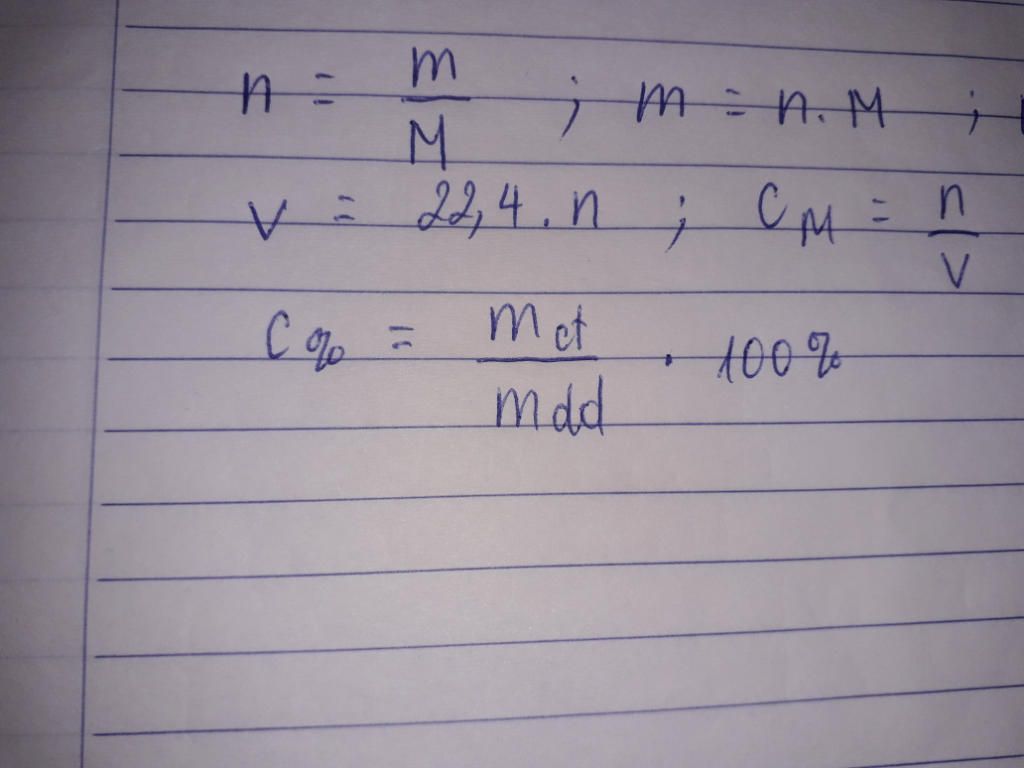 n = m/M ; m = n. M ;
V = 22,4 . n ; CM = n/V
C% = mct/mdd . 100%